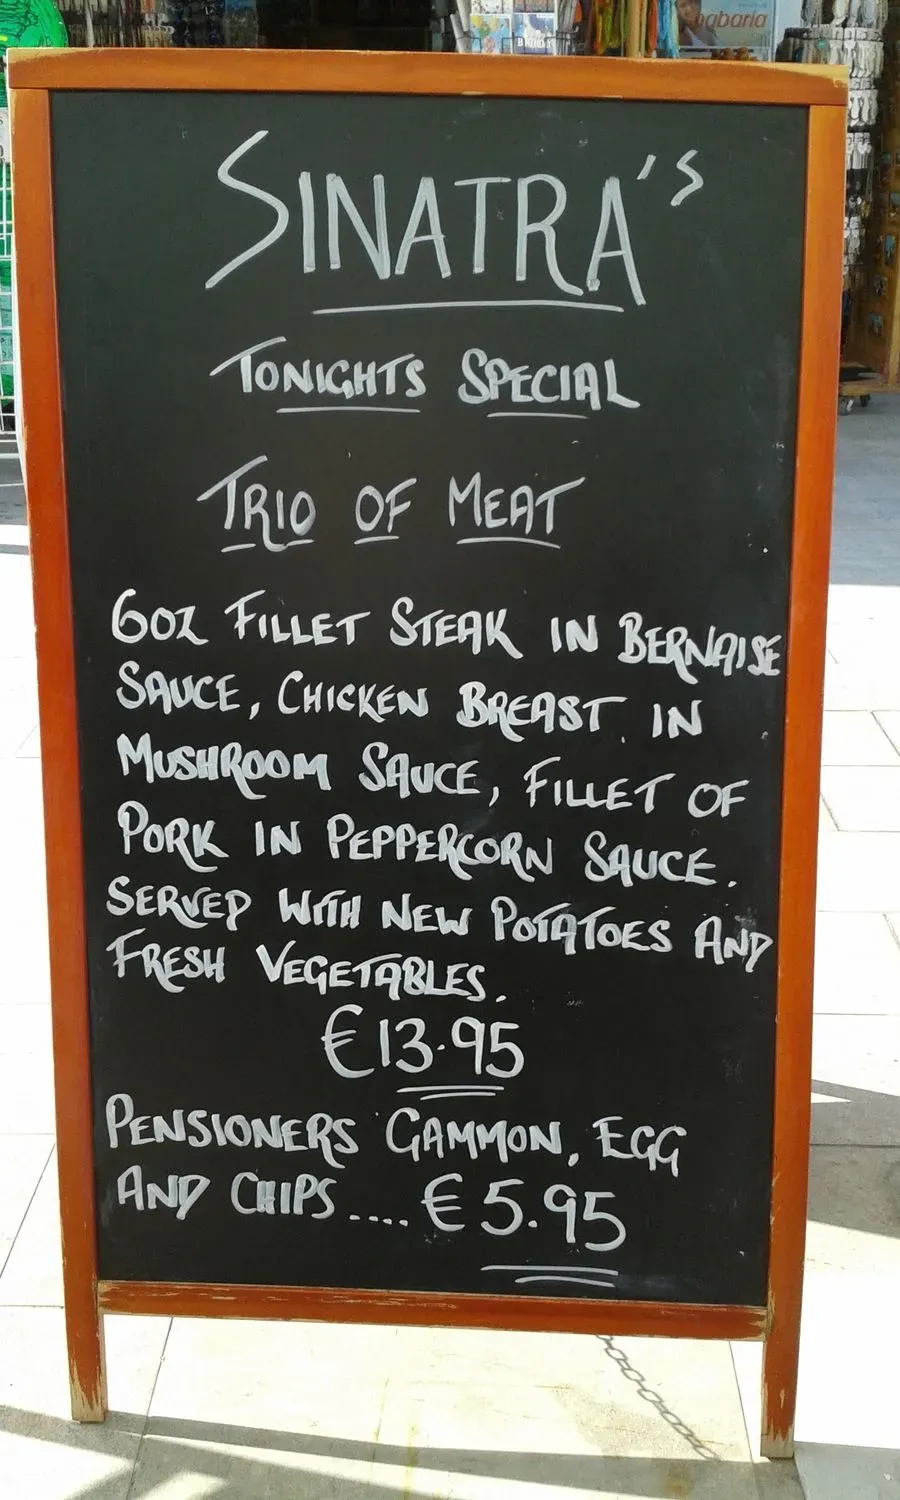 babaria
SINATRA'S
TONIGHTS SPECIAL
TRIO OF MEAT
6OZ FILLET STEAK IN BERNAISE
SAUCE, CHICKEN BREAST IN
MUSHROOM SAUCE, FILLET OF
PORK IN PEPPERCORN SAUCE.
SERVED WITH NEW POTATOES AND
FRESH VEGETABLES.
€13.95
PENSIONERS GAMMON, EGG
AND CHIPS .... € 5.95